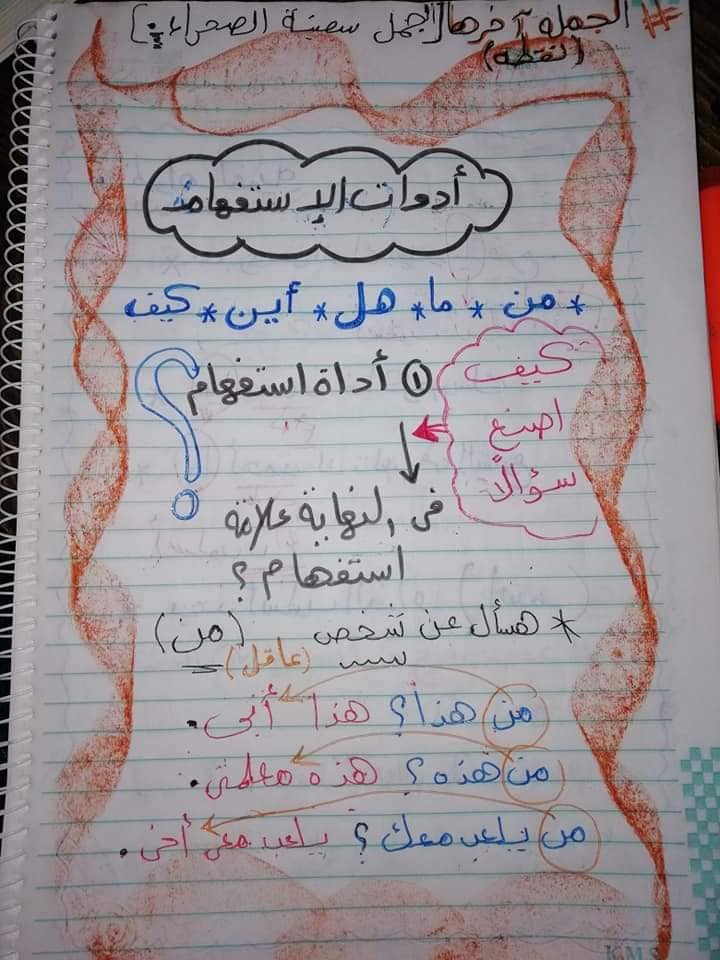 # الجملة آخرها [الجمل سفينة الصحراء.]
(نقطة)
أدوات الإستفهام
* من * ما * هل * أين * كيف
كيف
اصنع
سؤالاً
① أداة استفهام
؟
في النهاية علامة
استفهام ؟
* هسأل عن شخص (من)
(عاقل)
من هذا؟ هذا أبى.
من هذه؟ هذه معلمتى.
من يلعب معك؟ يلعب معى أخى.